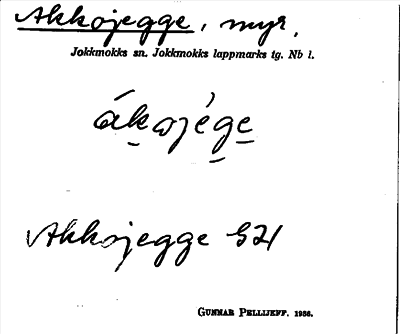 Akkajegge, myr.
Jokkmokks sn. Jokkmokks lappmarks tg. Nb l.
ákajége
Akkajegge S21
GUNNAR PELLIJEFF. 1956.